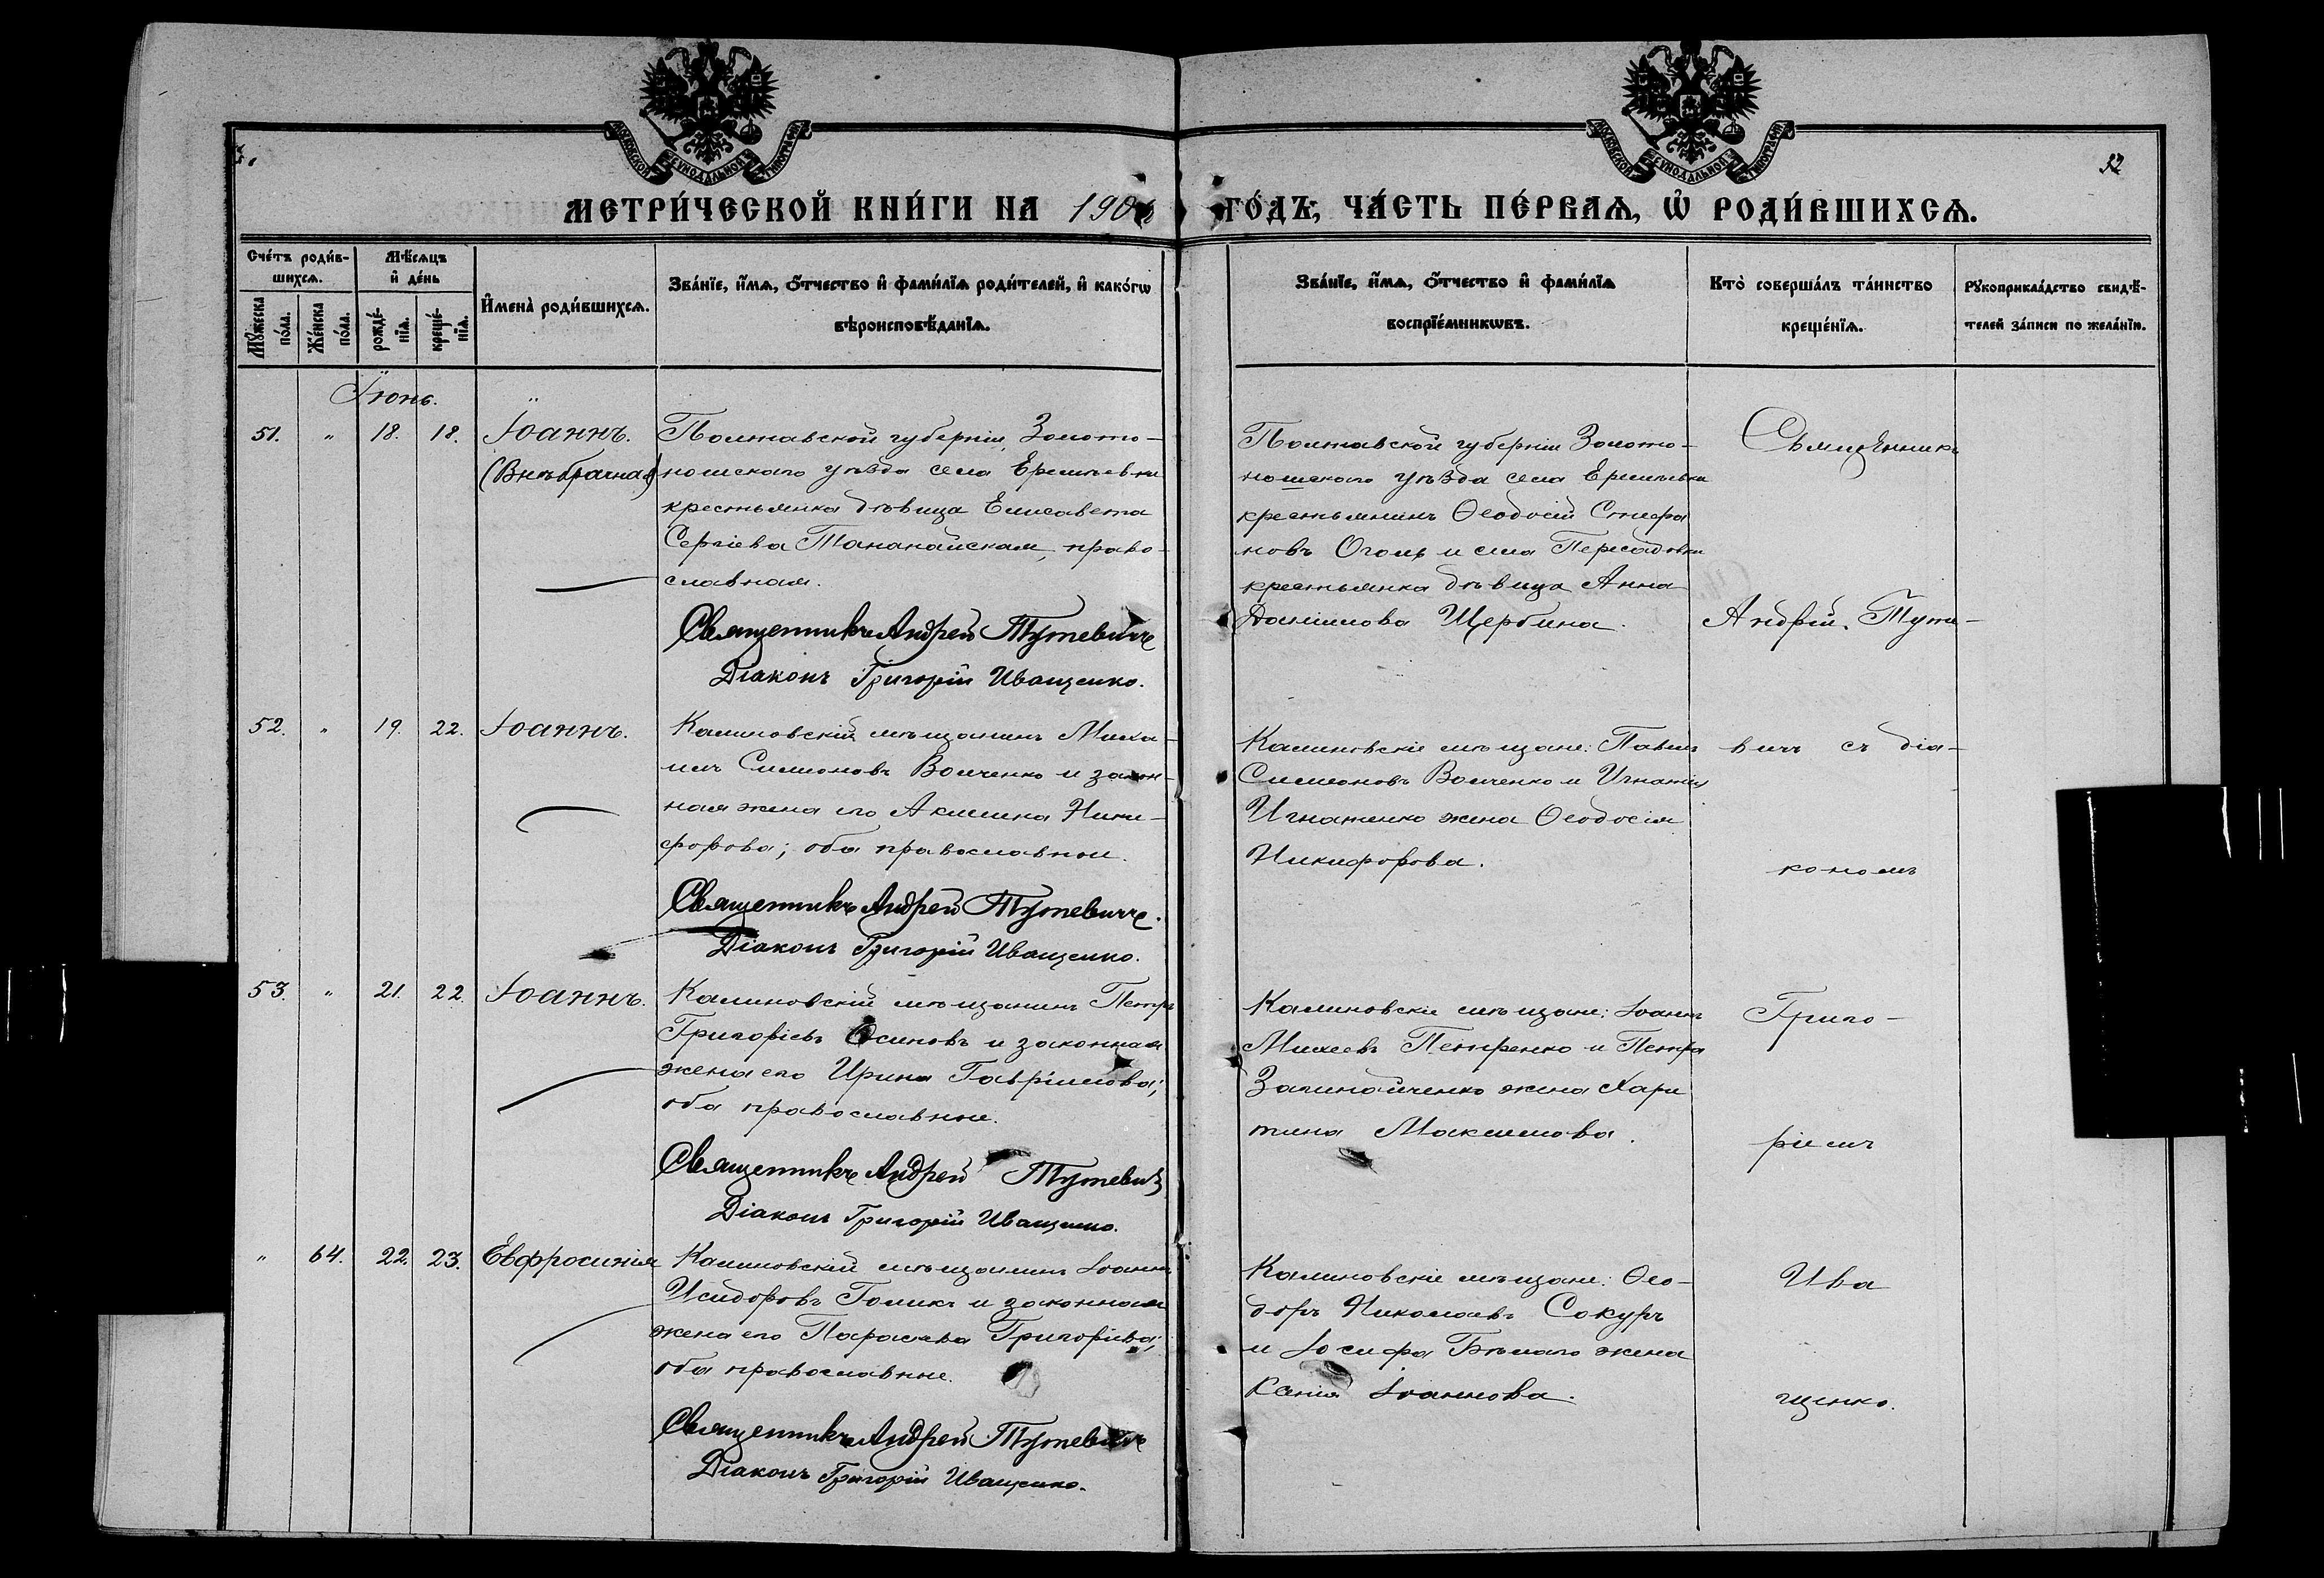 МОСКОВСКОЙ СѴНОДАЛЬНОЙ ТИПОГРАФІИ
МОСКОВСКОЙ СѴНОДАЛЬНОЙ ТИПОГРАФІИ
МЕТРИ́ЧЕСКОЙ КНИ́ГИ НА 190
ГО́ДЪ, ЧА́СТЬ ПЕ́РВАѦ, Ѡ҆ РОДИ́ВШИХСѦ.
Сче́тъ роди́в-
шихсѧ.
Мꙋ́жеска по́ла.
Же́нска по́ла.
Мѣ́сѧцъ
и҆ де́нь
рожде́-нїѧ.
креще́-нїѧ.
И҆мена̀ роди́вшихсѧ.
Зва́нїе, и҆́мѧ, ѻ҆́тчество и҆ фами́лїѧ роди́телей, и҆ како́гѡ
вѣроисповѣ́данїѧ.
Зва́нїе, и҆́мѧ, ѻ҆́тчество и҆ фами́лїѧ
воспрїе́мникѡвъ.
Кто̀ соверша́лъ та́инство
креще́нїѧ.
Рꙋкоприкла́дство свидѣ́-
телей за́писи по жела́нїю.
Іюнь.
51. " 18. 18. Іоаннъ.
(Внѣбрачная)
Полтавской губерніи, Золото-
ношскаго уѣзда села Еремѣевки
крестьянка дѣвица Елисавета
Сергіева Тананайская, право-
славная.
Священникъ Андрей Тутевичъ
Діаконъ Григорій Иващенко.
Полтавской губерніи Золото-
ношскаго уѣзда села Еремѣевки
крестьянинъ Ѳеодосій Стефа
новъ Оголь и села Пересадовки
крестьянка дѣвица Анна
Даніилова Щербина.
Священникъ
Андрей Туте-
52. " 19. 22. Іоаннъ.
Калиновскій мѣщанинъ Миха-
илъ Симеоновъ Волченко и закон-
ная жена его Акилина Ники-
форова; оба православные.
Священникъ Андрей Тутевичъ.
Діаконъ Григорій Иващенко.
Калиновскіе мѣщане: Павелъ
Симеоновъ Волченко и Игнатія
Игнатенко жена Ѳеодосія
Никифорова.
вичъ съ діа-
кономъ
53. " 21. 22. Іоаннъ.
Калиновскій мѣщанинъ Петръ
Григорьевъ Осиновъ и законная
жена его Ирина Гавріилова;
оба православные.
Священникъ Андрей Тутевичъ
Діаконъ Григорій Иващенко.
Калиновскіе мѣщане: Іоаннъ
Михеевъ Петренко и Петра
жена Хари
тина Максимова.
Григо-
ріемъ
" 64. 22. 23. Евфросинія
Калиновскій мѣщанинъ Іоаннъ
Исидоровъ Голикъ и законная
жена его Параскева Григорьева;
оба православные.
Священникъ Андрей Тутевичъ
Діаконъ Григорій Иващенко.
Калиновскіе мѣщане: Ѳео-
доръ Николаевъ Сокуръ
и Іосифа Бѣлаго жена
Ксенія Іоаннова.
Ива
щенко.